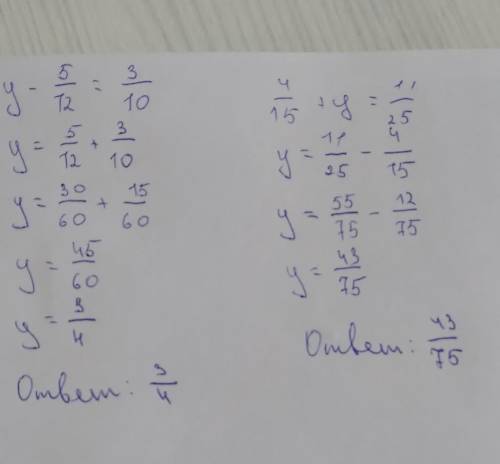 y - 5/12 = 3/10
y = 5/12 + 3/10
y = 30/60 + 15/60
y = 45/60
y = 3/4
Ответ: 3/4
4/15 + y = 11/25
y = 11/25 - 4/15
y = 55/75 - 12/75
y = 43/75
Ответ: 43/75